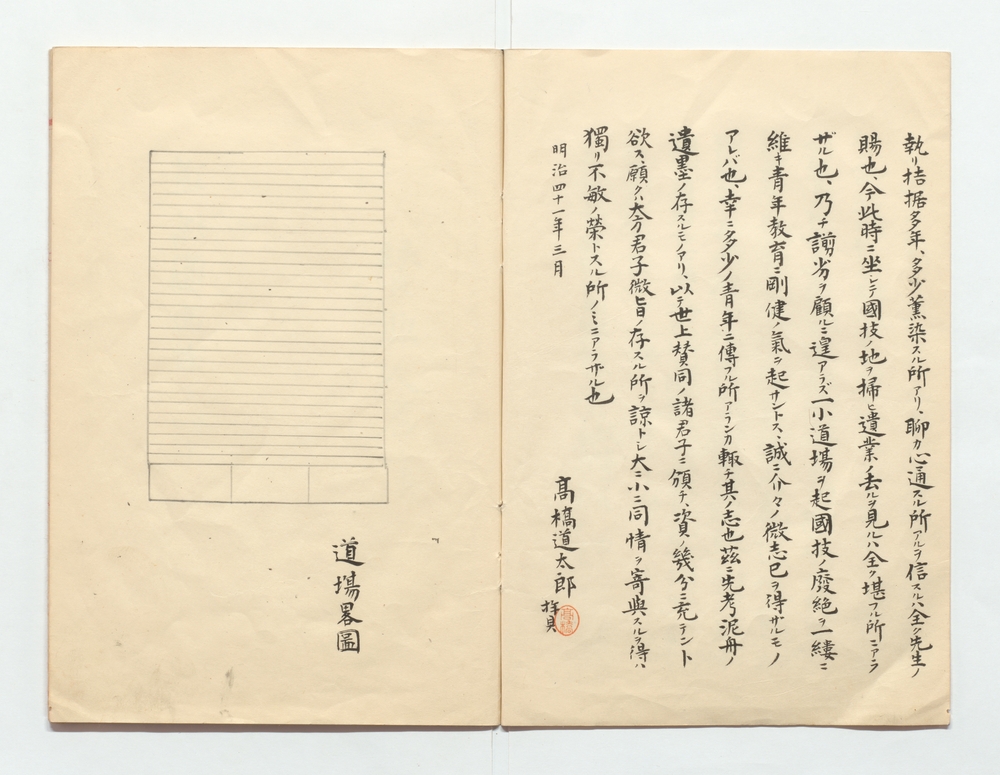 執リ拮据多年、多少薫染スル所アリ、聊カ心通スル所アルヲ信スルハ全ク先生ノ
賜也、今此時ニ坐シテ國技ノ地ヲ掃ヒ遺業ノ去ルヲ見ルハ全ク堪フル所ニアラ
ザル也、乃チ謭劣ヲ顧ルニ遑アラズ一小道場ヲ起國技ノ廢絶ヲ一縷ニ
維キ青年教育ニ剛健ノ氣ヲ起サントス、誠ニ介々ノ微志已ヲ得ザルモノ
アレバ也、幸ニ多少ノ青年ニ傳フル所アランカ輙チ其ノ志也茲ニ先考泥舟ノ
遺墨ノ存スルモノアリ、以テ世上賛同ノ諸君子ニ頒チ、資ノ幾分ニ充テント
欲ス、願クハ大方君子微旨ノ存スル所ヲ諒トシ大ニ小ニ同情ヲ寄與スルヲ得ハ
獨リ不敏ノ榮トスル所ノミニアラザル也
明治四十一年三月
髙橋道太郎 拝具
道場畧圖